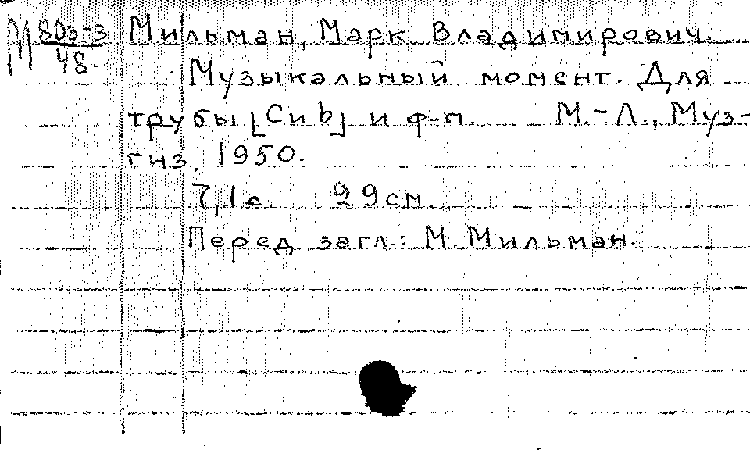 М 80э-3/48 Мильман, Марк Владимирович.
Музыкальный момент. Для
трубы [Си b] и ф-п. М.-Л., Муз-
гиз, 1950.
7,1 с. 29 см.
Перед загл.: М. Мильман.